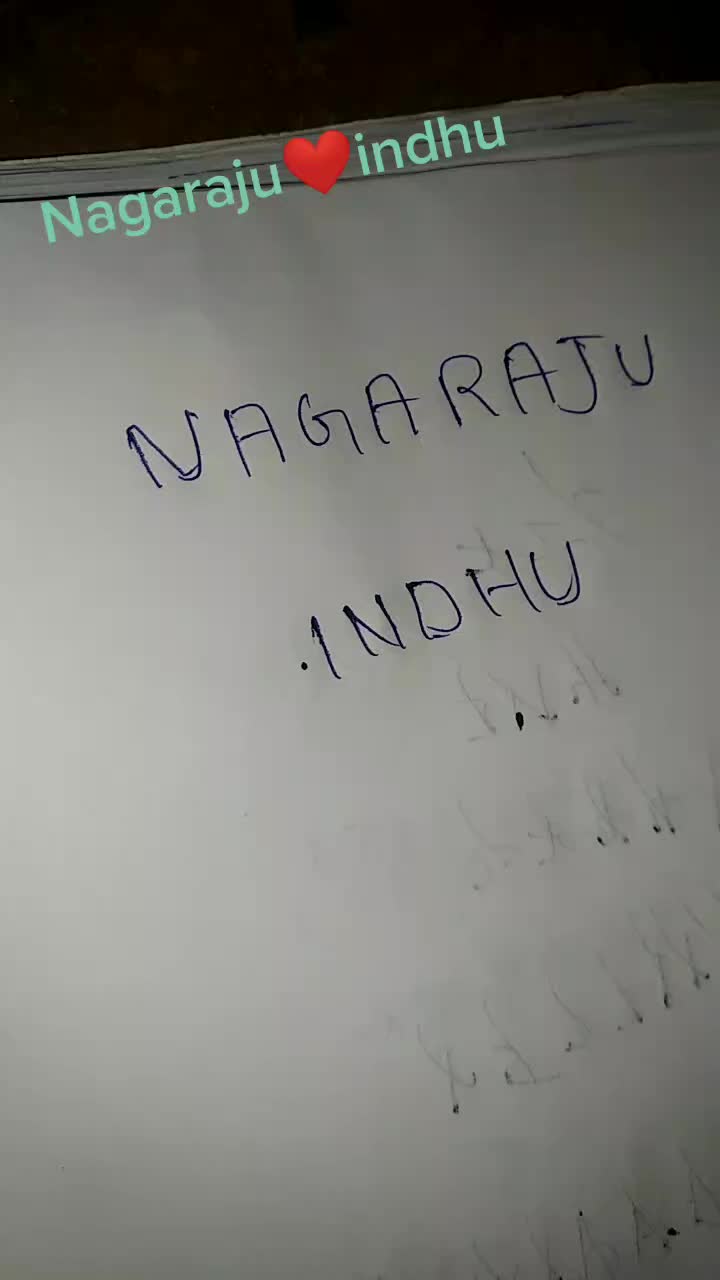 Nagaraju❤️indhu
NAGARAJU
.INDHU